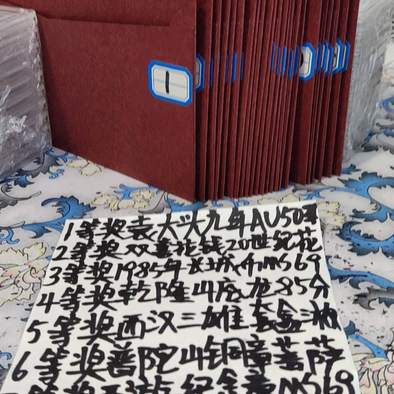 1
1等奖袁大头九年AU50
2等奖双菩花钱20世纪花
3等奖1985年长城币MS69
4等奖乾隆山底龙85分
5等奖西汉三雄套
6等奖普陀山铜章菩萨
等奖 纪念章MS69